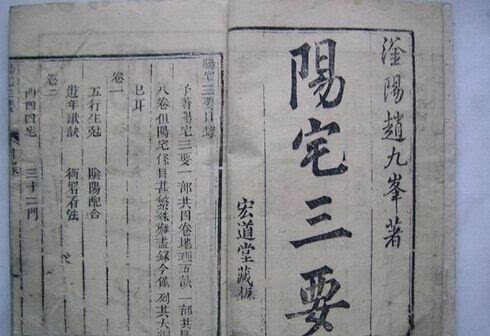 滏陽趙九峯著
陽宅三要
宏道堂藏板
陽宅三要目錄
予著陽宅三要一部共四卷地理五訣一部共
八卷但陽宅條目甚繁殊難盡錄今僅列其大
已耳
卷一
五行生剋 陰陽配合
遊年歌訣 衙署看法
卷二
三十二門